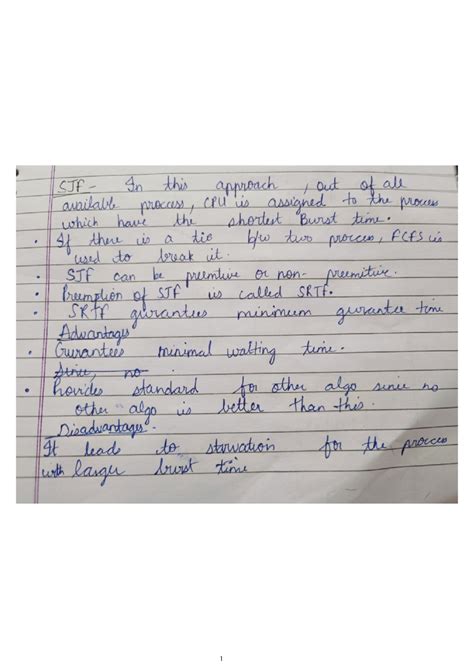 SJF - In this approach, out of all
available process, CPU is assigned to the process
which have the shortest Burst time.
• If there is a tie b/w two process, FCFS is
used to break it.
• SJF can be preemtive or non-preemitive.
• Preemption of SJF is called SRTF.
• SRTF gurantees minimum gurantee time
Advantages
• Gurantees minimal waiting time.
Since, no
• Provides standard for other algo sinie no
other algo is better than this.
Disadvantages -
It leads to starvation for the process
with larger burst time
1